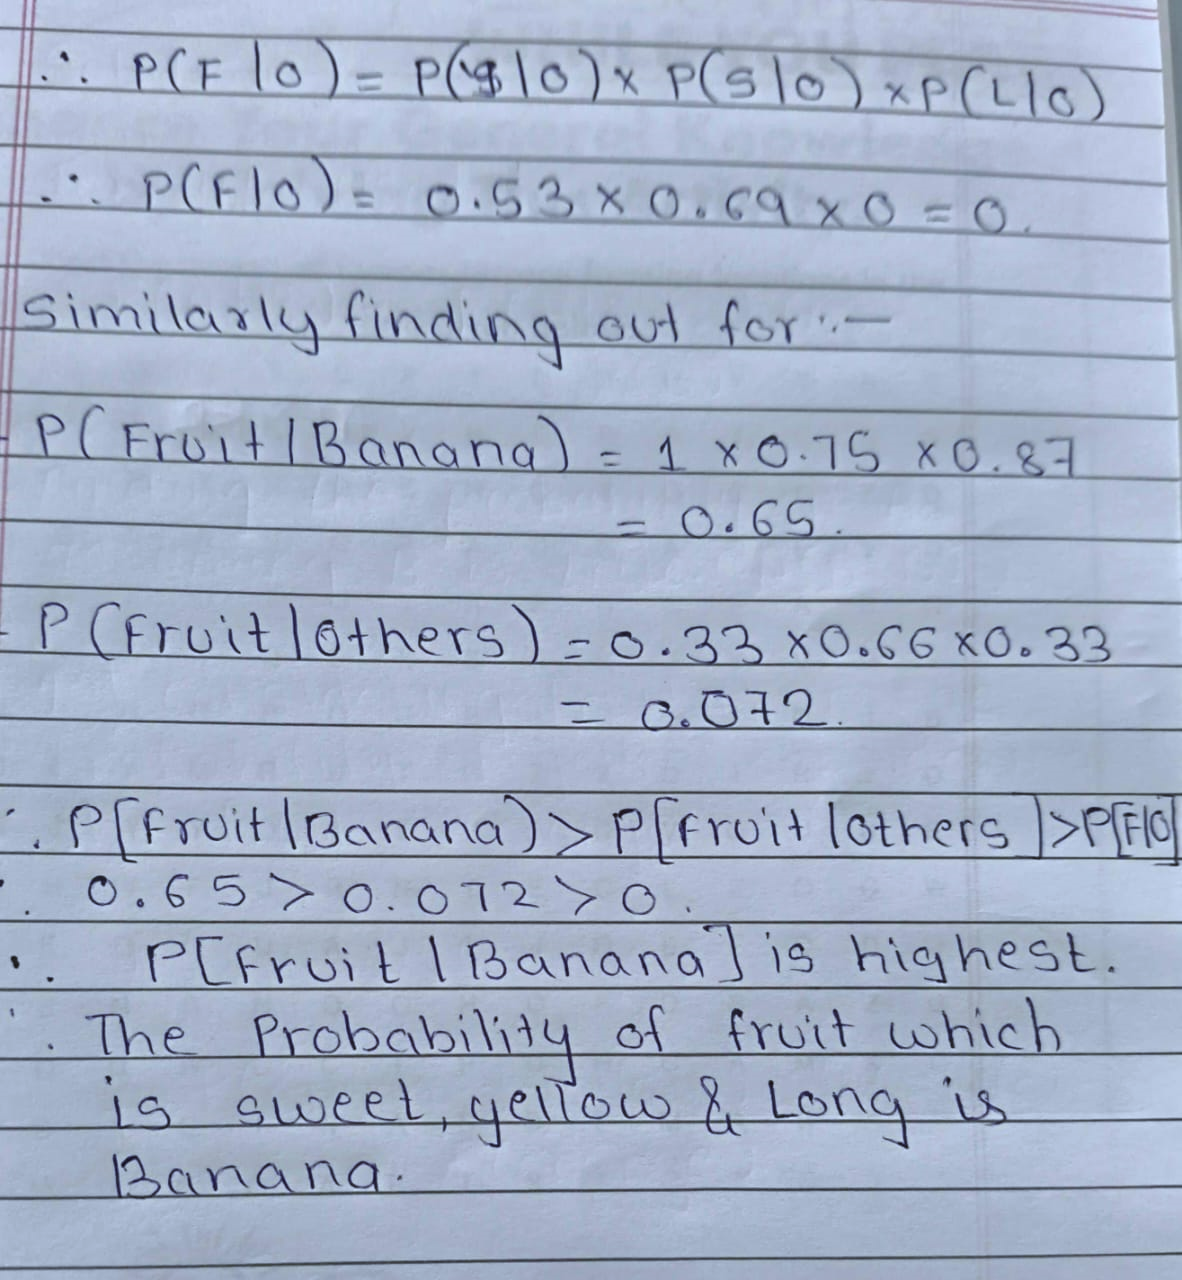 ∴ P(F|O) = P(Y|O) × P(S|O) × P(L|O)
∴ P(F|O) = 0.53 × 0.69 × 0 = 0.
Similarly finding out for :-
P(Fruit|Banana) = 1 × 0.75 × 0.87
= 0.65.
P(Fruit|Others) = 0.33 × 0.66 × 0.33
= 0.072.
∴ P[Fruit|Banana) > P[Fruit|Others] > P[F|O]
∴ 0.65 > 0.072 > 0.
∴ P[Fruit|Banana] is highest.
∴ The Probability of fruit which
is sweet, yellow & Long is
Banana.